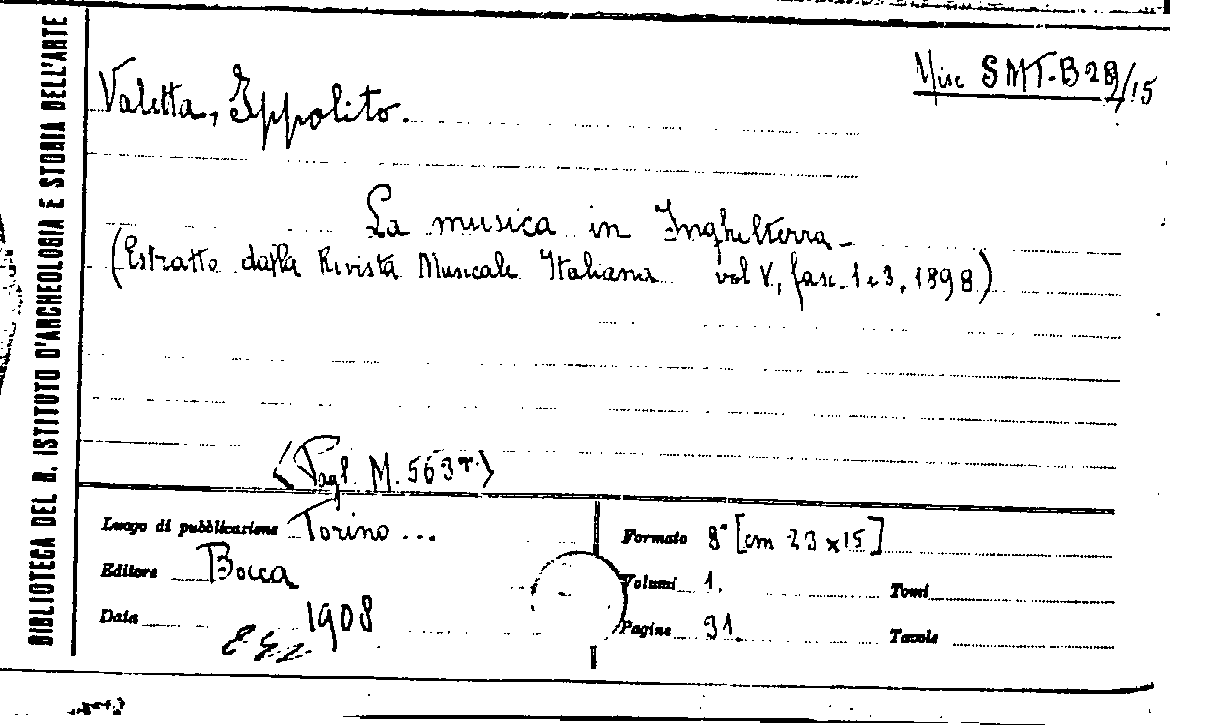 BIBLIOTECA DEL R. ISTITUTO D'ARCHEOLOGIA E STORIA DELL'ARTE
Misc SMT-B 29/15
Valetta, Ippolito.
La musica in Inghilterra -
(Estratto dalla Rivista Musicale Italiana vol V, fasc. 1 e 3, 1898)
<Pagl. M. 563 r.>
Luogo di pubblicazione Torino ...
Editore Bocca
Data 1908
Formato 8° [cm 23 x 15]
Volumi 1. Tomi
Pagine 31. Tavole